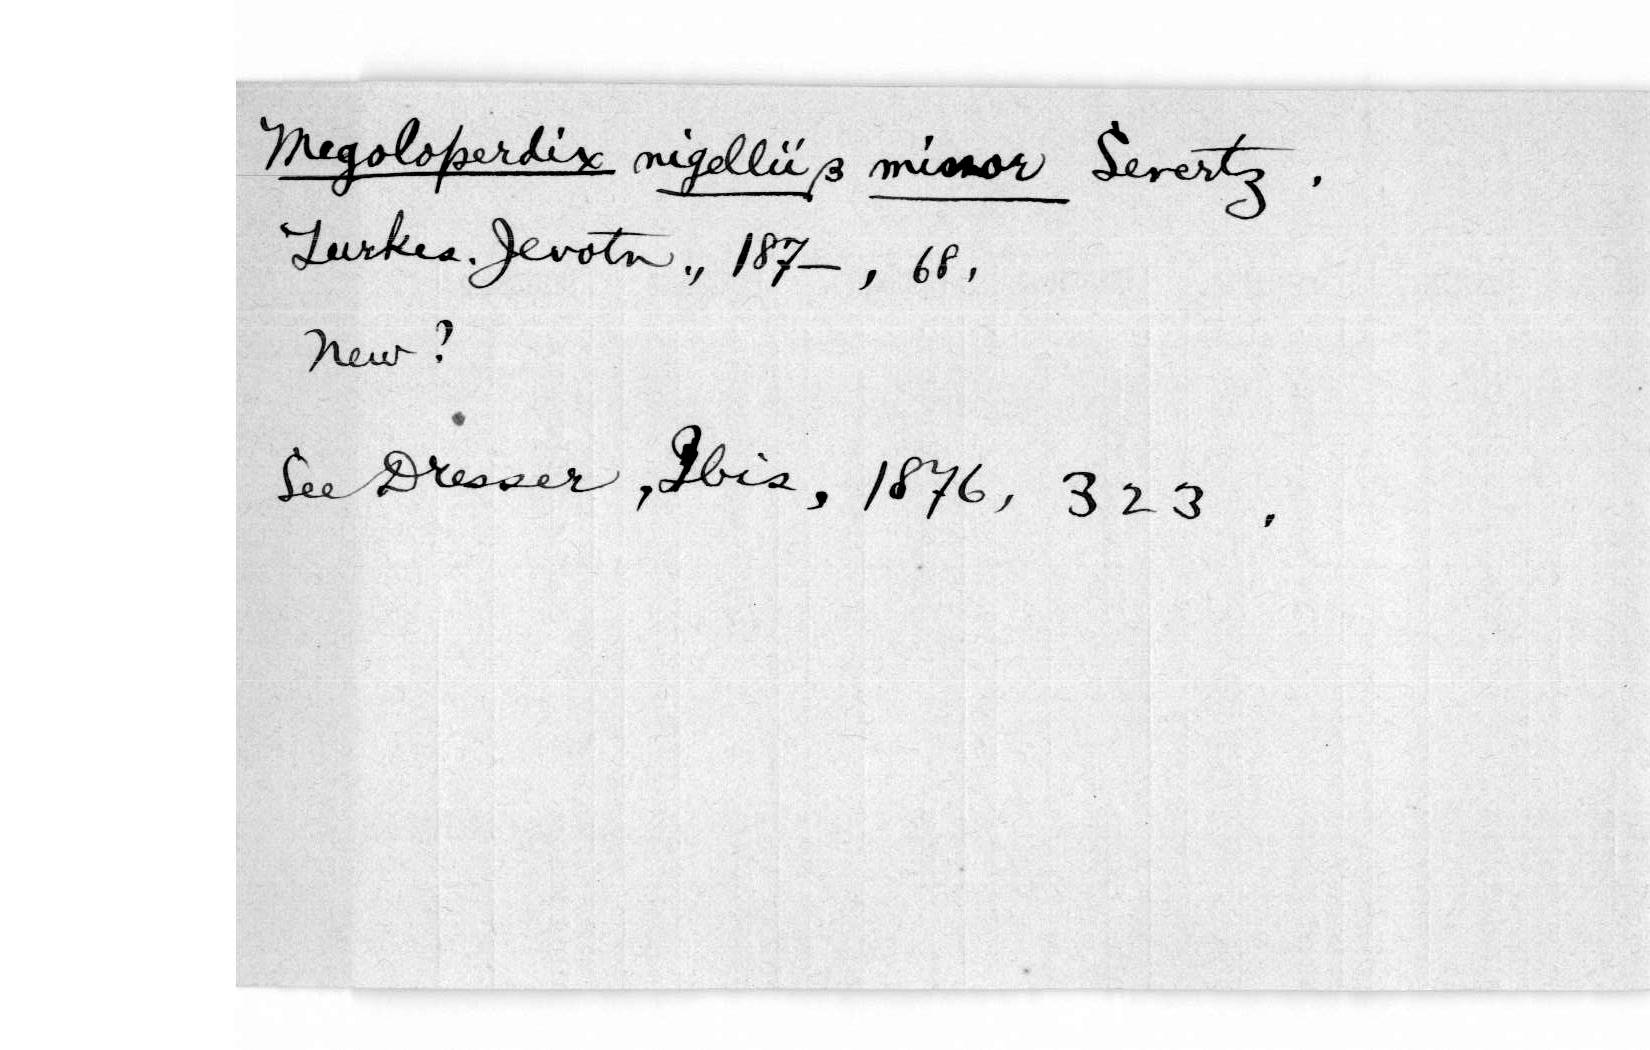 Megoloperdix nigellii β minor Severtz.
Turkes. Jevotn., 187-, 68.
New?
See Dresser, Ibis, 1876, 323.